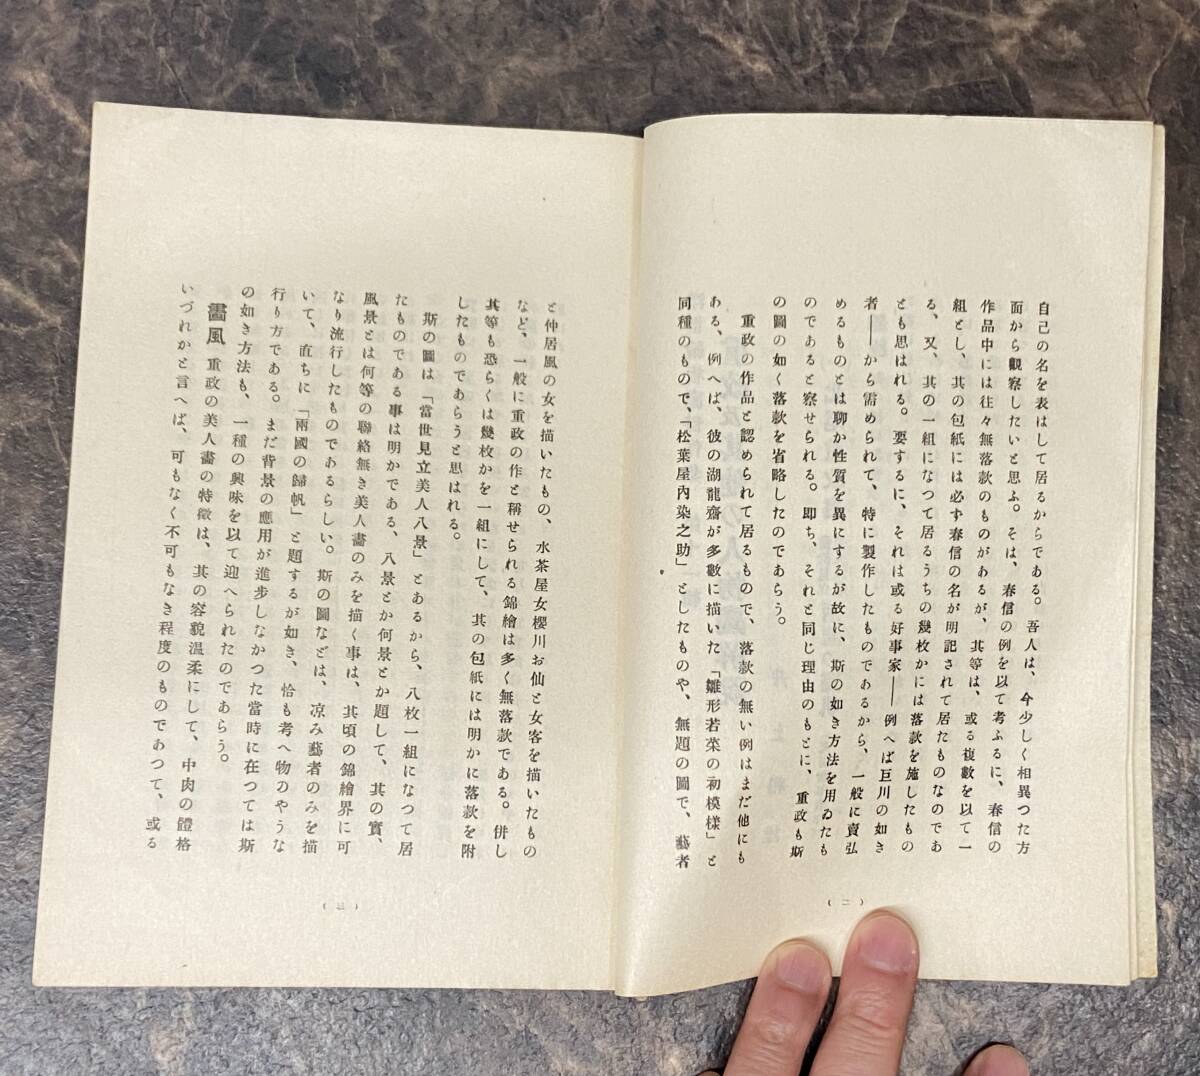 自己の名を表はして居るからである。吾人は、今少しく相異つた方
面から觀察したいと思ふ。そは、春信の例を以て考ふるに、春信の
作品中には往々無落款のものがあるが、其等は、或る複數を以て一
組とし、其の包紙には必ず春信の名が明記されて居たものなのであ
る、又、其の一組になつて居るうちの幾枚かには落款を施したもの
とも思はれる。要するに、それは或る好事家――例へば巨川の如き
者――から需められて、特に製作したものであるから、一般に賣弘
めるものとは聊か性質を異にするが故に、斯の如き方法を用ゐたも
のであると察せられる。即ち、それと同じ理由のもとに、重政も斯
の圖の如く落款を省略したのであらう。
重政の作品と認められて居るもので、落款の無い例はまだ他にも
ある、例へば、彼の湖龍齋が多數に描いた「雛形若菜の初模樣」と
同種のもので、「松葉屋内染之助」としたものや、無題の圖で、藝者
(二)
と仲居風の女を描いたもの、水茶屋女櫻川お仙と女客を描いたもの
など、一般に重政の作と稱せられる錦繪は多く無落款である。併し
其等も恐らくは幾枚かを一組にして、其の包紙には明かに落款を附
したものであらうと思はれる。
斯の圖は「當世見立美人八景」とあるから、八枚一組になつて居
たものである事は明かである、八景とか何景とか題して、其の實、
風景とは何等の聯絡無き美人畫のみを描く事は、其頃の錦繪界に可
なり流行したものであるらしい。斯の圖などは、凉み藝者のみを描
いて、直ちに「兩國の歸帆」と題するが如き、恰も考へ物のやうな
行り方である。まだ背景の應用が進步しなかつた當時に在つては斯
の如き方法も、一種の興味を以て迎へられたのであらう。
畫風 重政の美人畫の特徵は、其の容貌温柔にして、中肉の體格
いづれかと言へば、可もなく不可もなき程度のものであつて、或る
(三)